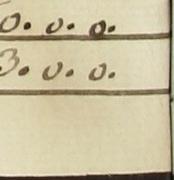 0. 0. 0.
3. 0. 0.